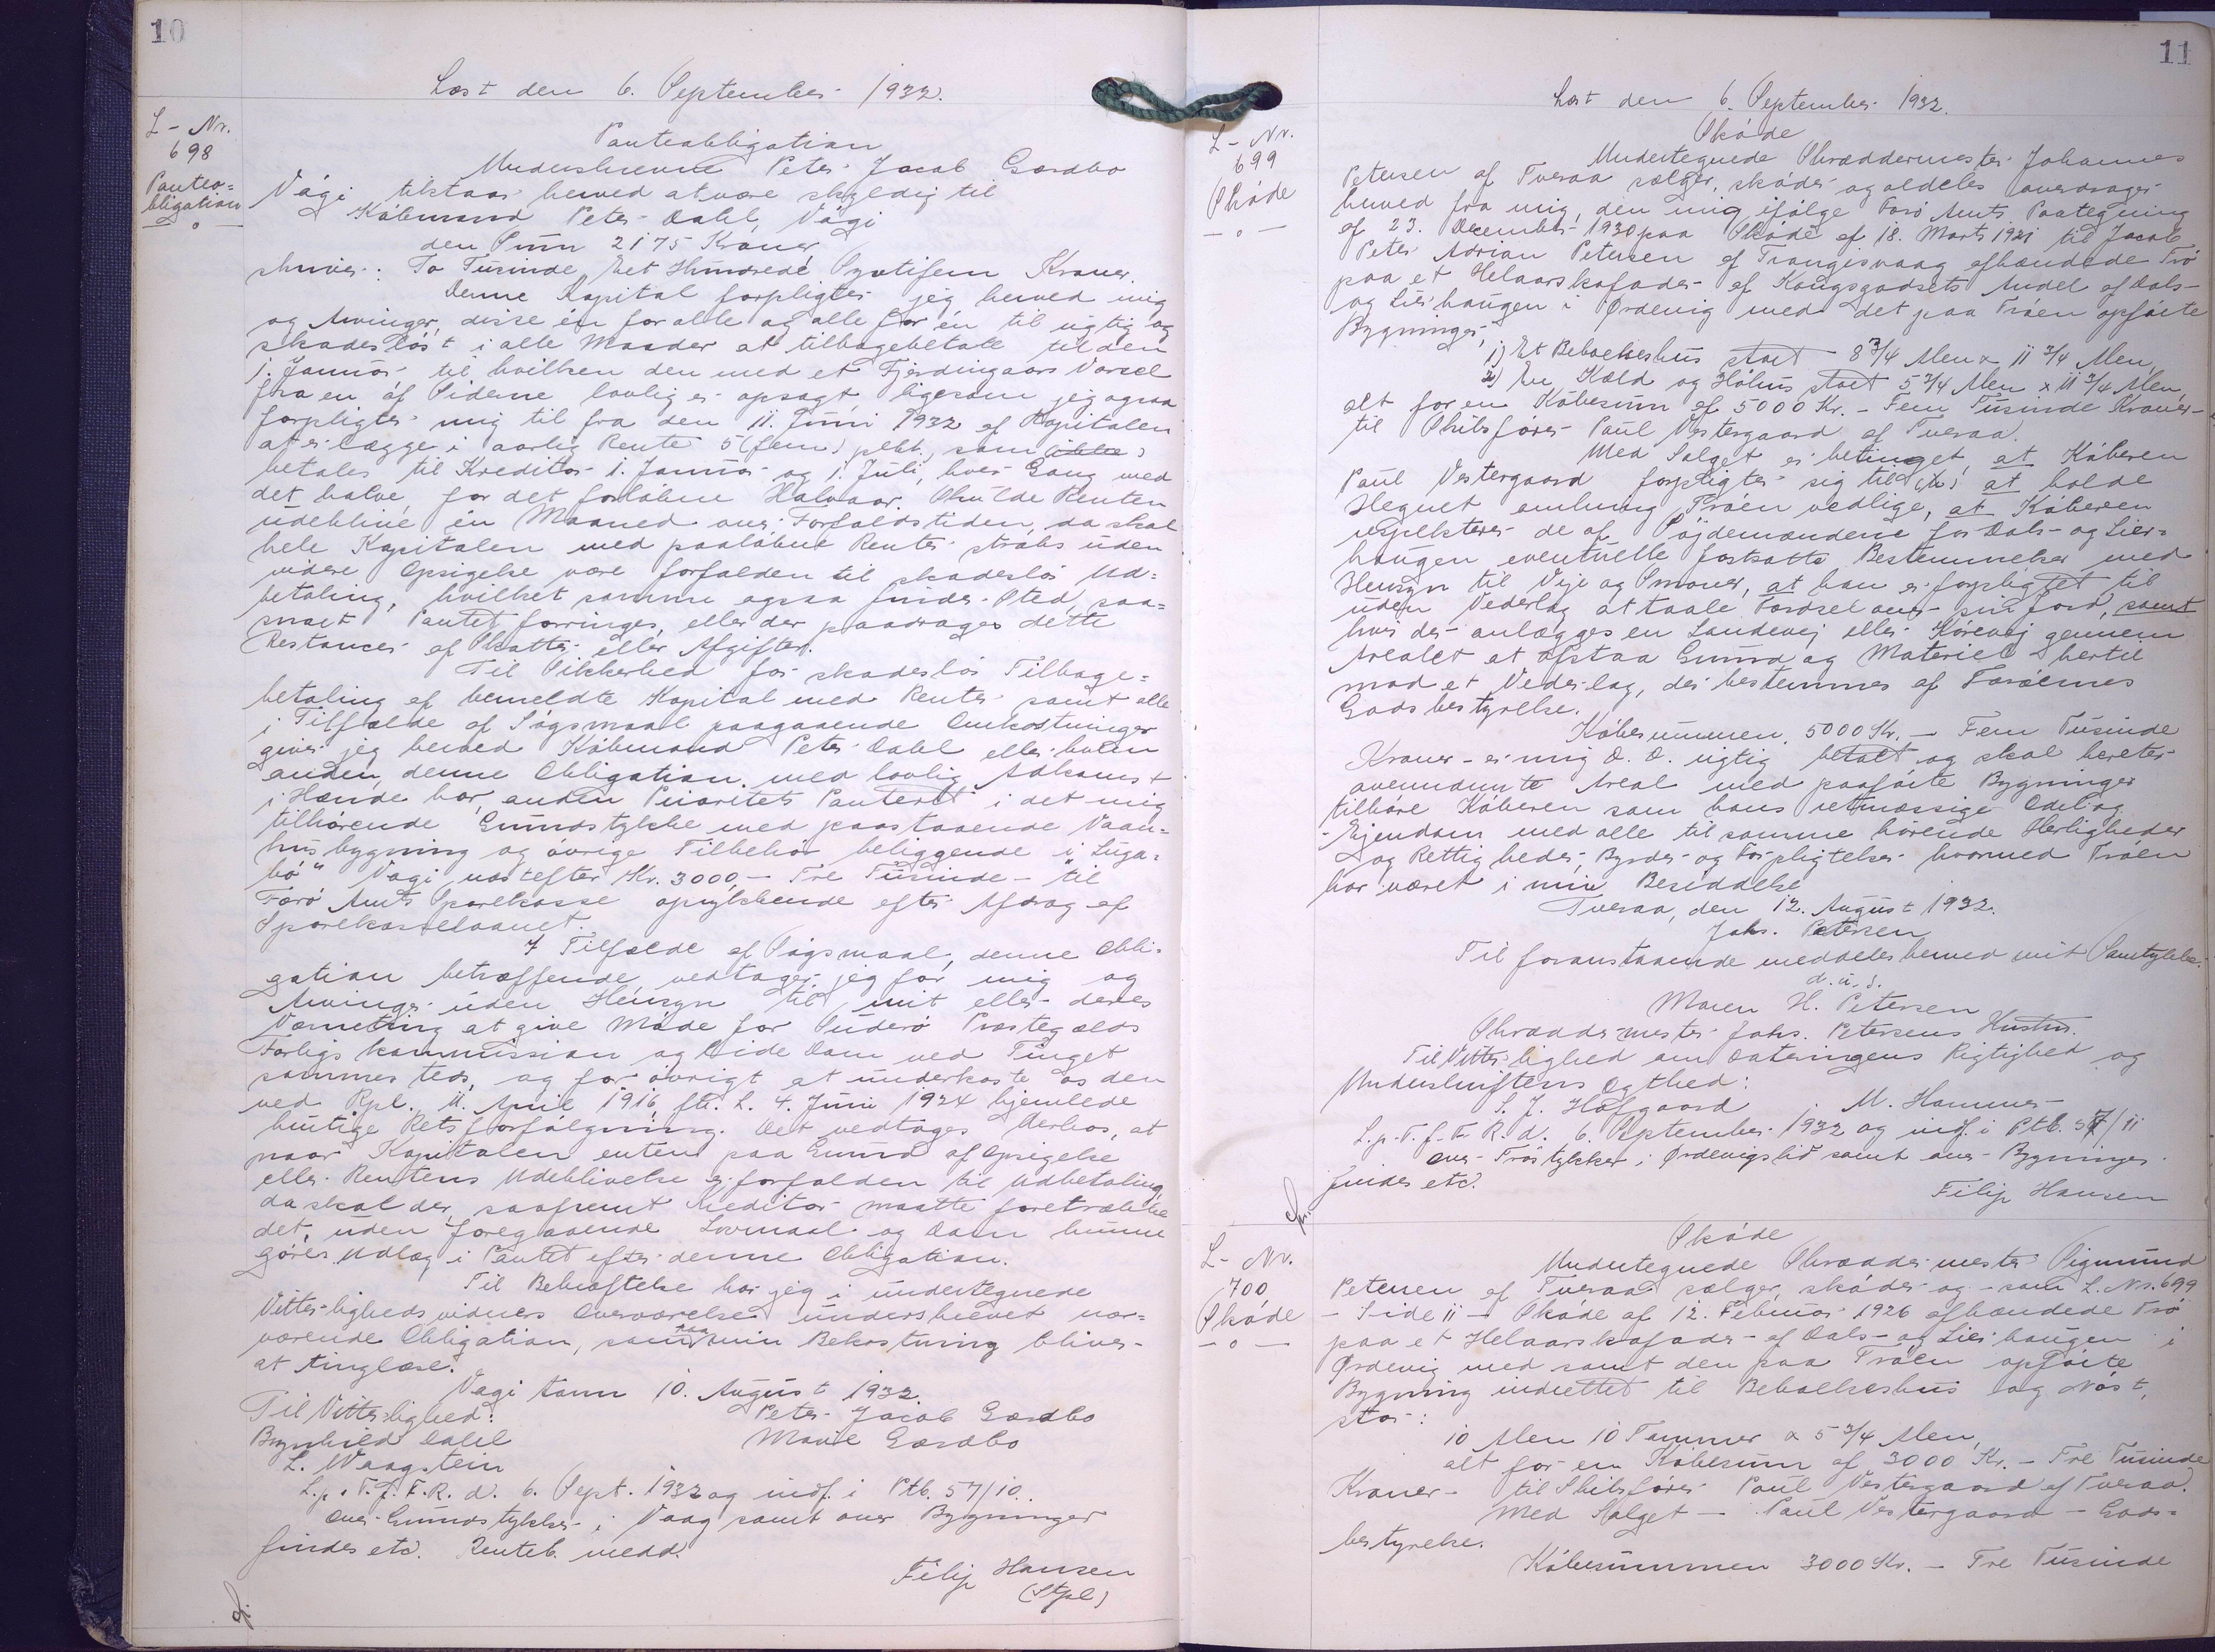 10
Læst den 6. September 1932.
L-Nr.
698
Panteo=
bligation
Panteobligation
Underskrevne Peter Jacob Gærdbo
Vági tilstaar herved at være skyldig til
Købmand Peter Dahl, Vági
den Sum 2175 Kroner
skriver: To Tusinde Et Hundrede Syvtifem Kroner.
Denne Kapital forpligter jeg herved mig
og Arvinger, disse én for alle og alle for én til rigtig og
skadesløst i alle Maader at tilbagebetale til den
1. Januar til hvilken den med et Fjerdingaars Varsel
fra en af Siderne lovlig er opsagt, ligesom jeg ogsaa
forpligter mig til fra den 11. Juni 1932 af Kapitalen
at erlægge i aarlig Rente 5 (fem) pCt., som (ikke)
betales til Kreditor 1. Januar og 1. Juli, hver Gang med
det halve, for det forløbne Halvaar. Skulde Renten
udeblive én Maaned over Forfaldstiden, da skal
hele Kapitalen med paaløbne Renter straks uden
videre Opsigelse være forfalden til skadesløs Ud=
betaling, hvilket samme ogsaa finder Sted, saa=
snart Pantet forringes, eller der paadrages dette
Restancer af Skatter eller Afgifter.
Til Sikkerhed for skadesløs Tilbage=
betaling af bemeldte Kapital med Renter samt alle
i Tilfælde af Søgsmaal paagaaende Omkostninger
giver jeg herved Købmand Peter Dahl eller hvem
anden, denne Obligation med lovlig Adkomst
i Hænde har, anden Prioritets Panteret i det mig
tilhørende Grundstykke med paastaaende Vaan=
husbygning og øvrige Tilbehør beliggende i Luja=
bø" Vági næstefter Kr. 3000,- Tre Tusinde - til
Færø Amts Sparekasse oprykkende efter Afdrag af
Sparekasselaanet.
I Tilfælde af Søgsmaal, denne Obli=
gation betræffende vedtager jeg for mig og
Arvinger uden Hensyn til mit eller deres
Værneting at give Møde for Suderø Præstegælds
Forligskommission og lide Dom ved Tinget
sammesteds, og for øvrigt at underkaste os den
ved Rpl. 11. April 1916, jfr. L. 4. Juni 1924 hjemlede
hurtige Retsforfølgning. Det vedtages derhos, at
naar Kapitalen enten paa Grund af Opsigelse
eller Rentens Udeblivelse er forfalden til Udbetaling,
da skal der, saafremt Kreditor maatte foretrække
det, uden foregaaende Lovmaal og Dom kunne
gøres Udlæg i Pantet efter denne Obligation.
Til Bekræftelse har jeg i undertegnede
Vitterlighedsvidners Overværelse underskrevet nær=
værende Obligation, som paa min Bekostning bliver
at tinglæse.
Vági den 10. August 1932.
Til Vitterlighed: Peter Jacob Gærdbo
Brynhild Dahl Marie Gærdbo
L. Waagstein
L. p. T. f. F. R. d. 6. Sept. 1932 og indf. i Ptb. 57/10.
Over Grundstykker i Vaag samt over Bygninger
findes etc. Renteb. medd.
Filip Hansen
(Stpl)
11
Læst den 6. September 1932.
L-Nr.
699
Skøde
Skøde
Undertegnede Skræddermester Johannes
Petersen af Tveraa sælger, skøder og aldeles overdrager
herved fra mig, den mig ifølge Færø Amts Paategning
af 23. December 1930 paa Skøde af 18. Marts 1921 til Jacob
Peter Adrian Petersen af Trangisvaag afhændede Trø
paa et Helaarskofoder af Kongsgodsets Andel af Dals-
og Lier haugen i Ørdevig med det paa Trøen opførte
Bygninger,
1) Et Beboelseshus stort 8 3/4 Alen x 11 3/4 Alen,
2) En Kæld og Høhus stort 5 3/4 Alen x 11 3/4 Alen,
alt for en Købesum af 5000 Kr. - Fem Tusinde Kroner-
til Skibsfører Paul Vestergaard af Tveraa.
Med Salget er betinget, at Køberen
Paul Vestergaard forpligter sig til at holde
Hegnet omkring Trøen vedlige, at Køberen
respekterer de af Søjdemændene for Dals- og Lier=
haugen eventuelle fastsatte Bestemmelser med
Hensyn til Veje og Smoner, at han er forpligtet til
uden Vederlag at taale Færdsel over sin Jord, samt
hvis der anlægges en Landevej eller Kørevej gennem
Arealet at afstaa Grund og Materiel hertil
mod et Vederlag, der bestemmes af Færøernes
Godsbestyrelse.
Købesummen, 5000 Kr. - Fem Tusinde
Kroner - er mig D. D. rigtig betalt og skal herefter
ovennævnte Areal med paaførte Bygninger
tilhøre Køberen som hans retmæssige Odel og
Ejendom med alle til samme hørende Herligheder
og Rettigheder, Byrder og Forpligtelser hvormed Trøen
har været i min Besiddelse
Tveraa, den 12. August 1932.
Johs. Petersen
Til foranstaaende meddeles herved mit Samtykke.
d. u. s.
Maren H. Petersen
Skræddermester Johs. Petersens Hustru.
Til Vitterlighed om Dateringens Rigtighed og
Underskriftens Ægthed:
S. J. Hofgaard M. Hammer
L. p. T. f. F. R. d. 6. September 1932 og indf. i Ptb. 57/11
Over Trøstykker i Ørdevigslid samt over Bygninger
findes etc.
Filip Hansen
L-Nr.
700
Skøde
Skøde
Undertegnede Skræddermester Sigmund
Petersen af Tveraa sælger, skøder og - som L. Nr. 699
- Side 11 - Skøde af 12. Februar 1926 afhændede Trø
paa et Helaarskofoder af Dals- og Lier haugen i
Ørdevig med samt den paa Trøen opførte
Bygning indrettet til Beboelseshus og Nøst,
stor:
10 Alen 10 Tommer x 5 3/4 Alen,
alt for en Købesum af 3000 Kr. - Tre Tusinde
Kroner - til Skibsfører Paul Vestergaard af Tveraa.
Med Salget - Paul Vestergaard - Gods=
bestyrelse.
Købesummen 3000 Kr. - Tre Tusinde